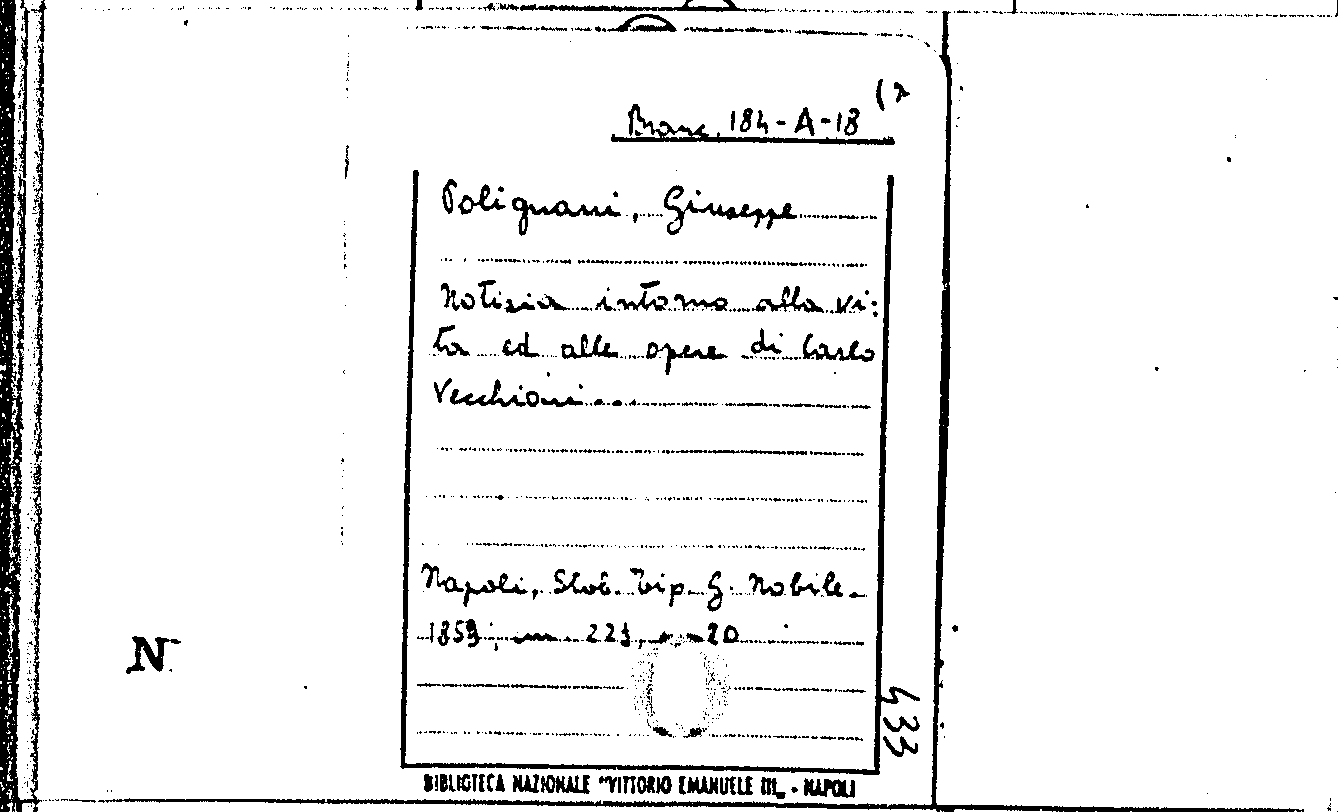 (2
Branc. 184-A-18
Polignani, Giuseppe
Notizia intorno alla vi:
ta ed alle opere di Carlo
Vecchioni...
Napoli, Stab. Tip. G. Nobile.
1859; cm. 22½, pp. 20
N
433
BIBLIOTECA NAZIONALE "VITTORIO EMANUELE III„ - NAPOLI